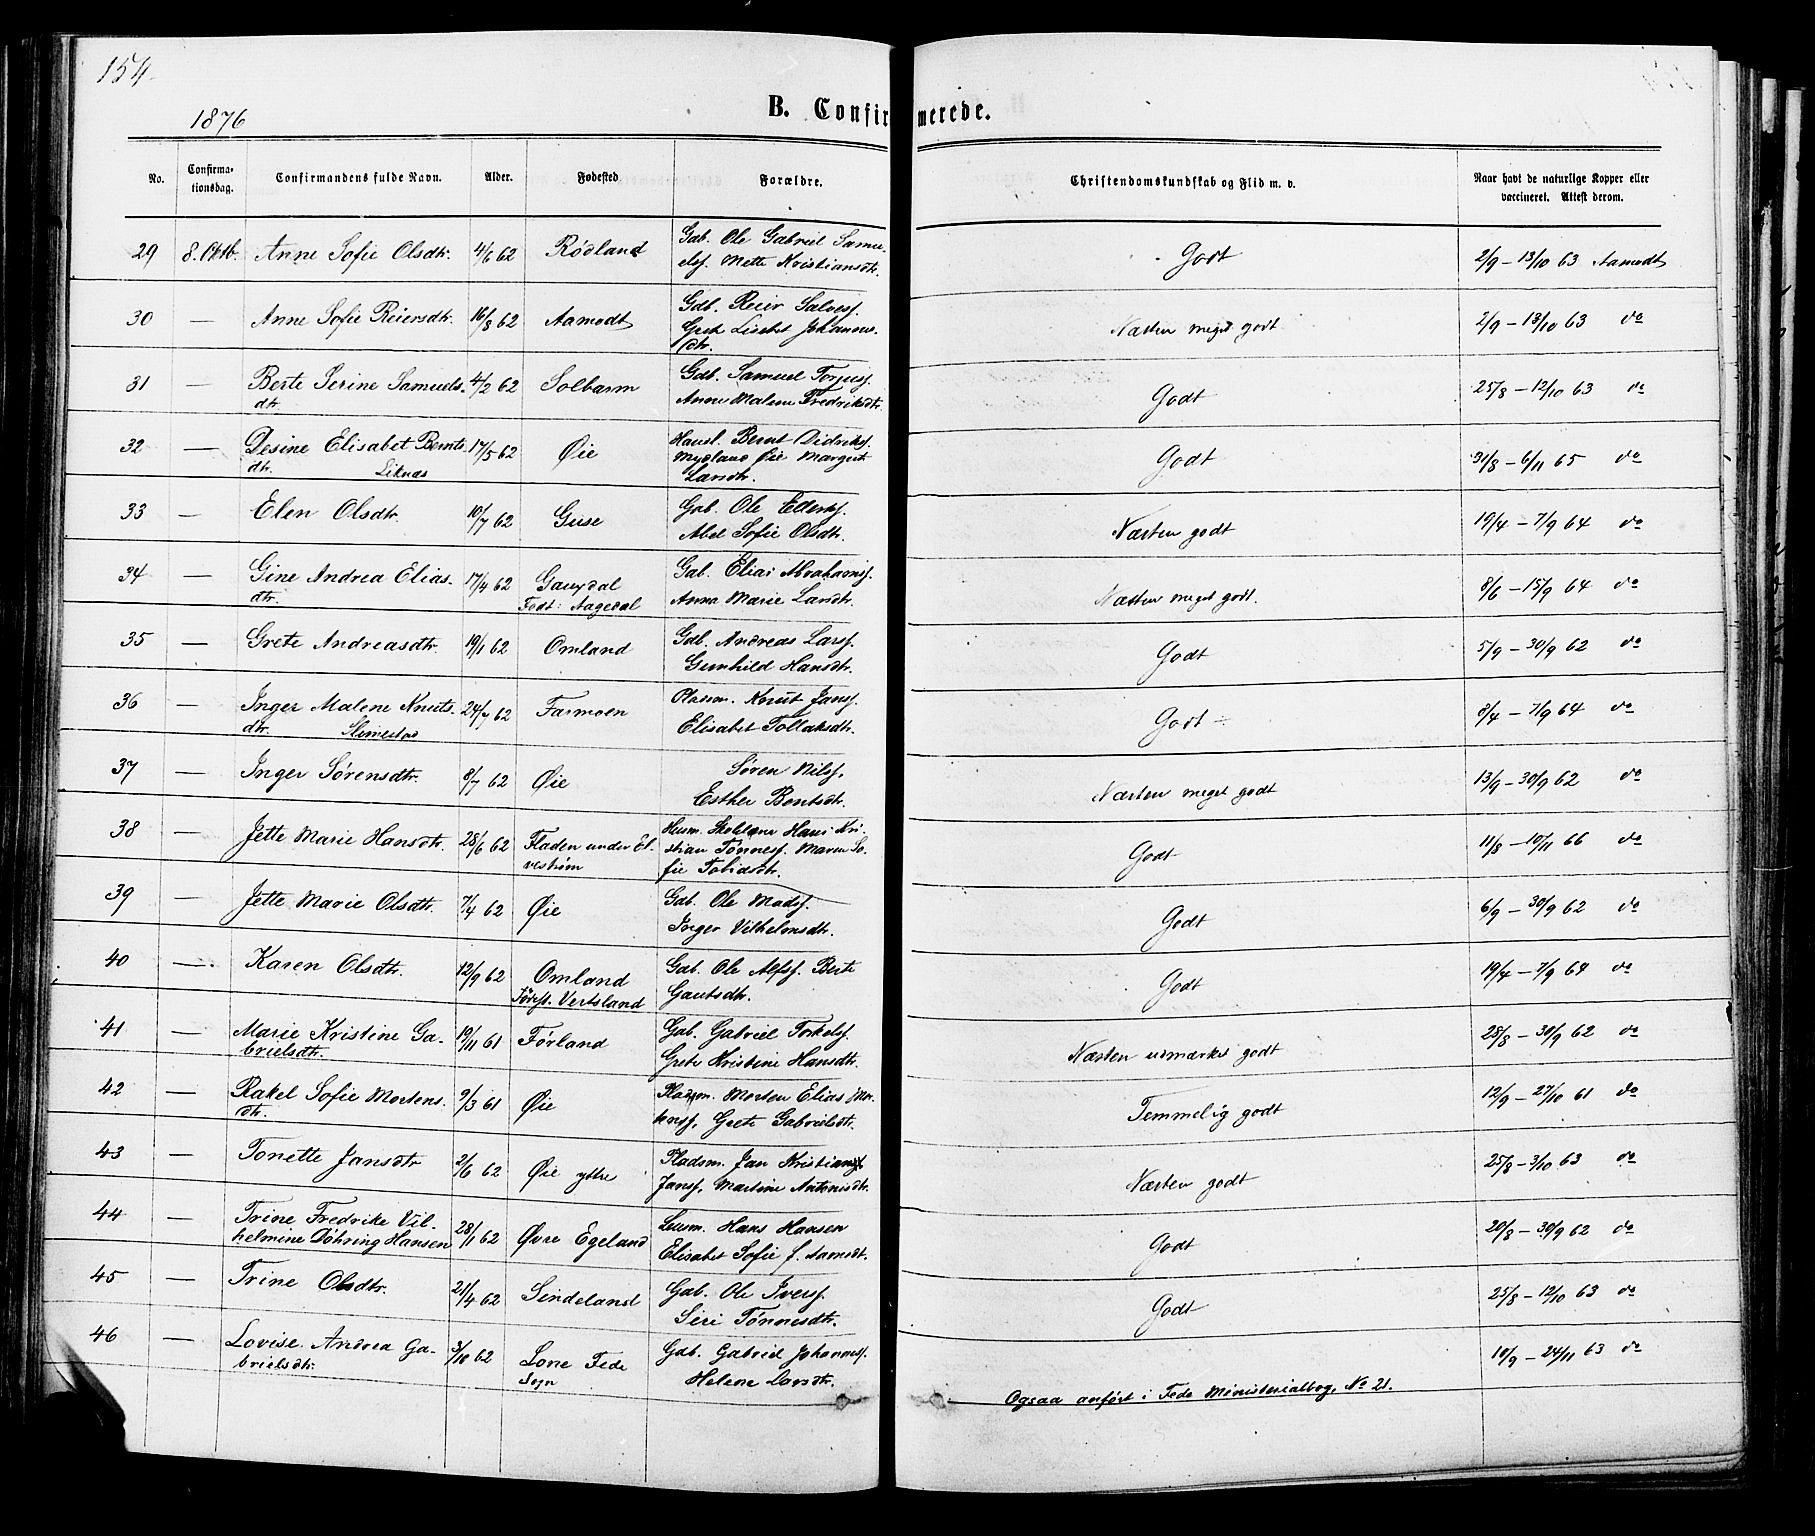 154
1876
B. Confirmerede.
No. Confirma-tionsdag. Confirmandens fulde Navn. Alder. Fødested Forældre. Christendomskundskab og Flid m. v. Naar havt de naturlige Kopper eller vaccineret. Attest derom.
29 8. Oktb. Anne Sofie Olsdtr. 4/6 62 Rødland Gab. Ole Gabriel Samu- Godt 2/9 – 13/10 63 Aamodt
elsf. Mette Kristiansdtr.
30 — Anne Sofie Reiersdtr. 16/8 62 Aamodt Gdb. Reier Salvesf. Næsten meget godt 2/9 – 13/10 63 do
Grete Lisebet Johannes-
dtr.
31 — Berte Serine Samuels- 4/2 62 Solbarm Gdb. Samuel Torjusf. Godt 25/8 – 12/10 63 do
dtr. Anne Malene Fredriksdtr.
32 — Desine Elisabet Bernts- 17/5 62 Øie Husl. Bernt Didriksf. Godt 31/8 – 6/11 65 do
dtr. Liknes Mydland Øie Margret
Larsdtr.
33 — Elen Olsdtr. 10/7 62 Guse Gab. Ole Ellertsf. Næsten godt 19/4 – 7/9 64 do
Abel Sofie Olsdtr.
34 — Gine Andrea Elias- 17/4 62 Gausdal Gab. Elias Abrahamsf. Næsten meget godt. 8/6 – 15/9 64 do
dtr. Født: Aagedal Anna Marie Larsdtr.
35 — Grete Andreasdtr. 19/1 62 Omland Gdb. Andreas Larsf. Godt 5/9 – 30/9 62 do
Gunhild Hansdtr.
36 — Inger Malene Knuts- 24/7 62 Farmoen Pladsm. Knut Jansf. Godt ÷ 8/4 – 7/9 64 do
dtr. Slimestad Elisabet Tollaksdtr.
37 — Inger Sørensdtr. 8/7 62 Øie Søren Nilsf. Næsten meget godt 13/9 – 30/9 62 do
Esther Bentsdtr.
38 — Jette Marie Hansdtr. 28/6 62 Fladen under El- Husm. Hans Kri- Godt 11/8 – 10/11 66 do
vestrøm stian Tønnesf. Maren So-
fie Tobiasdtr.
39 — Jette Marie Olsdtr. 7/4 62 Øie Gab. Ole Madsf. Godt 6/9 – 30/9 62 do
Inger Vilhelmsdtr.
40 — Karen Olsdtr. 12/9 62 Omland Gab. Ole Alfsf. Berte Godt 19/4 – 7/9 64 do
Vertsland Gautsdtr.
41 — Marie Kristine Ga- 19/11 61 Førland Gab. Gabriel Torkelsf. Næsten udmærket godt 28/8 – 30/9 62 do
brielsdtr. Grete Kristine Hansdtr.
42 — Rakel Sofie Mortens- 9/3 61 Øie Pladsm. Morten Elias Mor- Temmelig godt 12/9 – 27/10 61 do
dtr. tensf. Grete Gabrielsdtr.
43 — Tonette Jansdtr 2/6 62 Øie ytre Pladsm. Jan Kristian Næsten godt 25/8 – 3/10 63 do
Jansf. Martine Antonisdtr.
44 — Trine Fredrike Vil- 28/1 62 Øvre Egeland Lensm. Hans Hansen Godt 20/8 – 30/9 62 do
helmine Døhring Hansen Elisabet Sofie f. Aamodt.
45 — Trine Olsdtr. 21/4 62 Sindeland Gab. Ole Iversf. Godt 25/8 – 12/10 63 do
Siri Tønnesdtr.
46 — Lovise Andrea Ga- 3/10 62 Lone Fede Gdb. Gabriel Johannesf. 10/9 – 24/11 63 do
brielsdtr. Sogn Helene Larsdtr.
Ogsaa anført i Fede Ministerialbog, No 21.